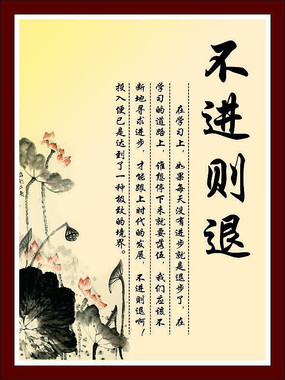 不进则退
在学习上，如果每天没有进步就是退步了，在
学习的道路上，谁想停下来就要落伍，我们应该不
断地寻求进步，才能跟上时代的发展，不进则退啊！
投入便已是达到了一种极致的境界。